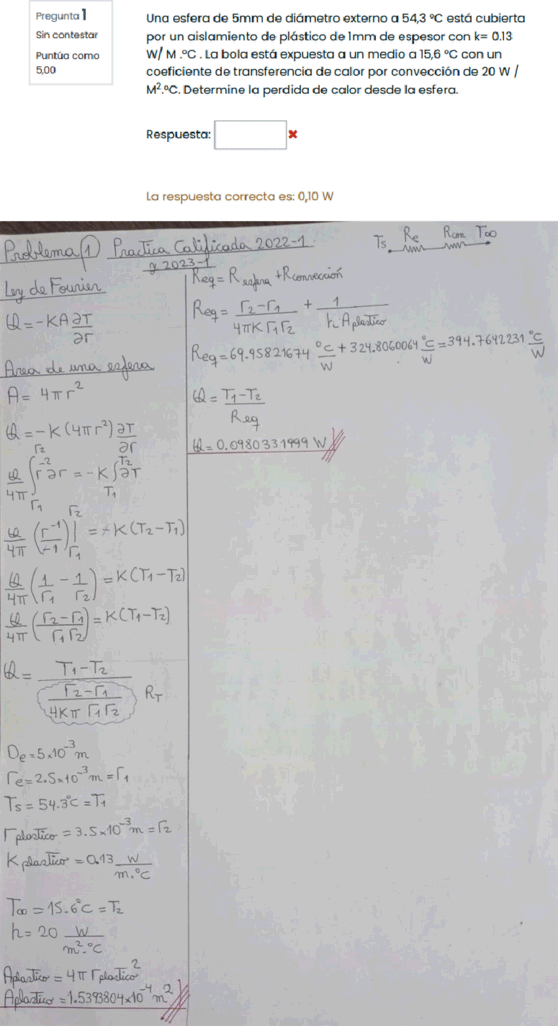 Pregunta 1
Sin contestar
Puntúa como
5,00
Una esfera de 5mm de diámetro externo a 54,3 ºC está cubierta
por un aislamiento de plástico de 1mm de espesor con k= 0.13
W/ M .ºC . La bola está expuesta a un medio a 15,6 ºC con un
coeficiente de transferencia de calor por convección de 20 W /
M².ºC. Determine la perdida de calor desde la esfera.
Respuesta:
La respuesta correcta es: 0,10 W
Problema 1 Practica Calificada 2022-1
y 2023-1
Ley de Fourier
Q = -KA ∂T/∂r
Area de una esfera
A = 4πr²
Q = -K(4πr²) ∂T/∂r
Q/4π ∫_{r1}^{r2} r⁻² ∂r = -K ∫_{T1}^{T2} ∂T
Q/4π (r⁻¹/-1)|_{r1}^{r2} = -K(T2-T1)
Q/4π (1/r1 - 1/r2) = K(T1-T2)
Q/4π (r2-r1/r1 r2) = K(T1-T2)
Q = T1-T2 / (r2-r1 / 4Kπ r1 r2) RT
De = 5x10⁻³ m
re = 2.5x10⁻³ m = r1
Ts = 54.3°C = T1
r plastico = 3.5x10⁻³ m = r2
K plastico = 0.13 W/m.°C
T∞ = 15.6°C = T2
h = 20 W/m².°C
Aplastico = 4π r plastico²
Aplastico = 1.5393804x10⁻⁴ m²
Ts Re Rcon T∞
Req = Resfera + Rconvección
Req = r2-r1/4πK r1 r2 + 1/h Aplastico
Req = 69.95821674 °C/W + 324.8060064 °C/W = 394.7642231 °C/W
Q = T1-T2/Req
Q = 0.0980331999 W